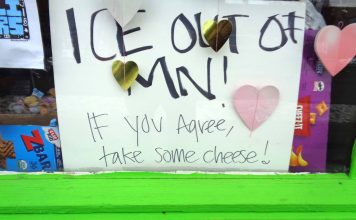 ICE OUT OF
MN!
IF YOU Agree,
take some cheese!
ZBAR